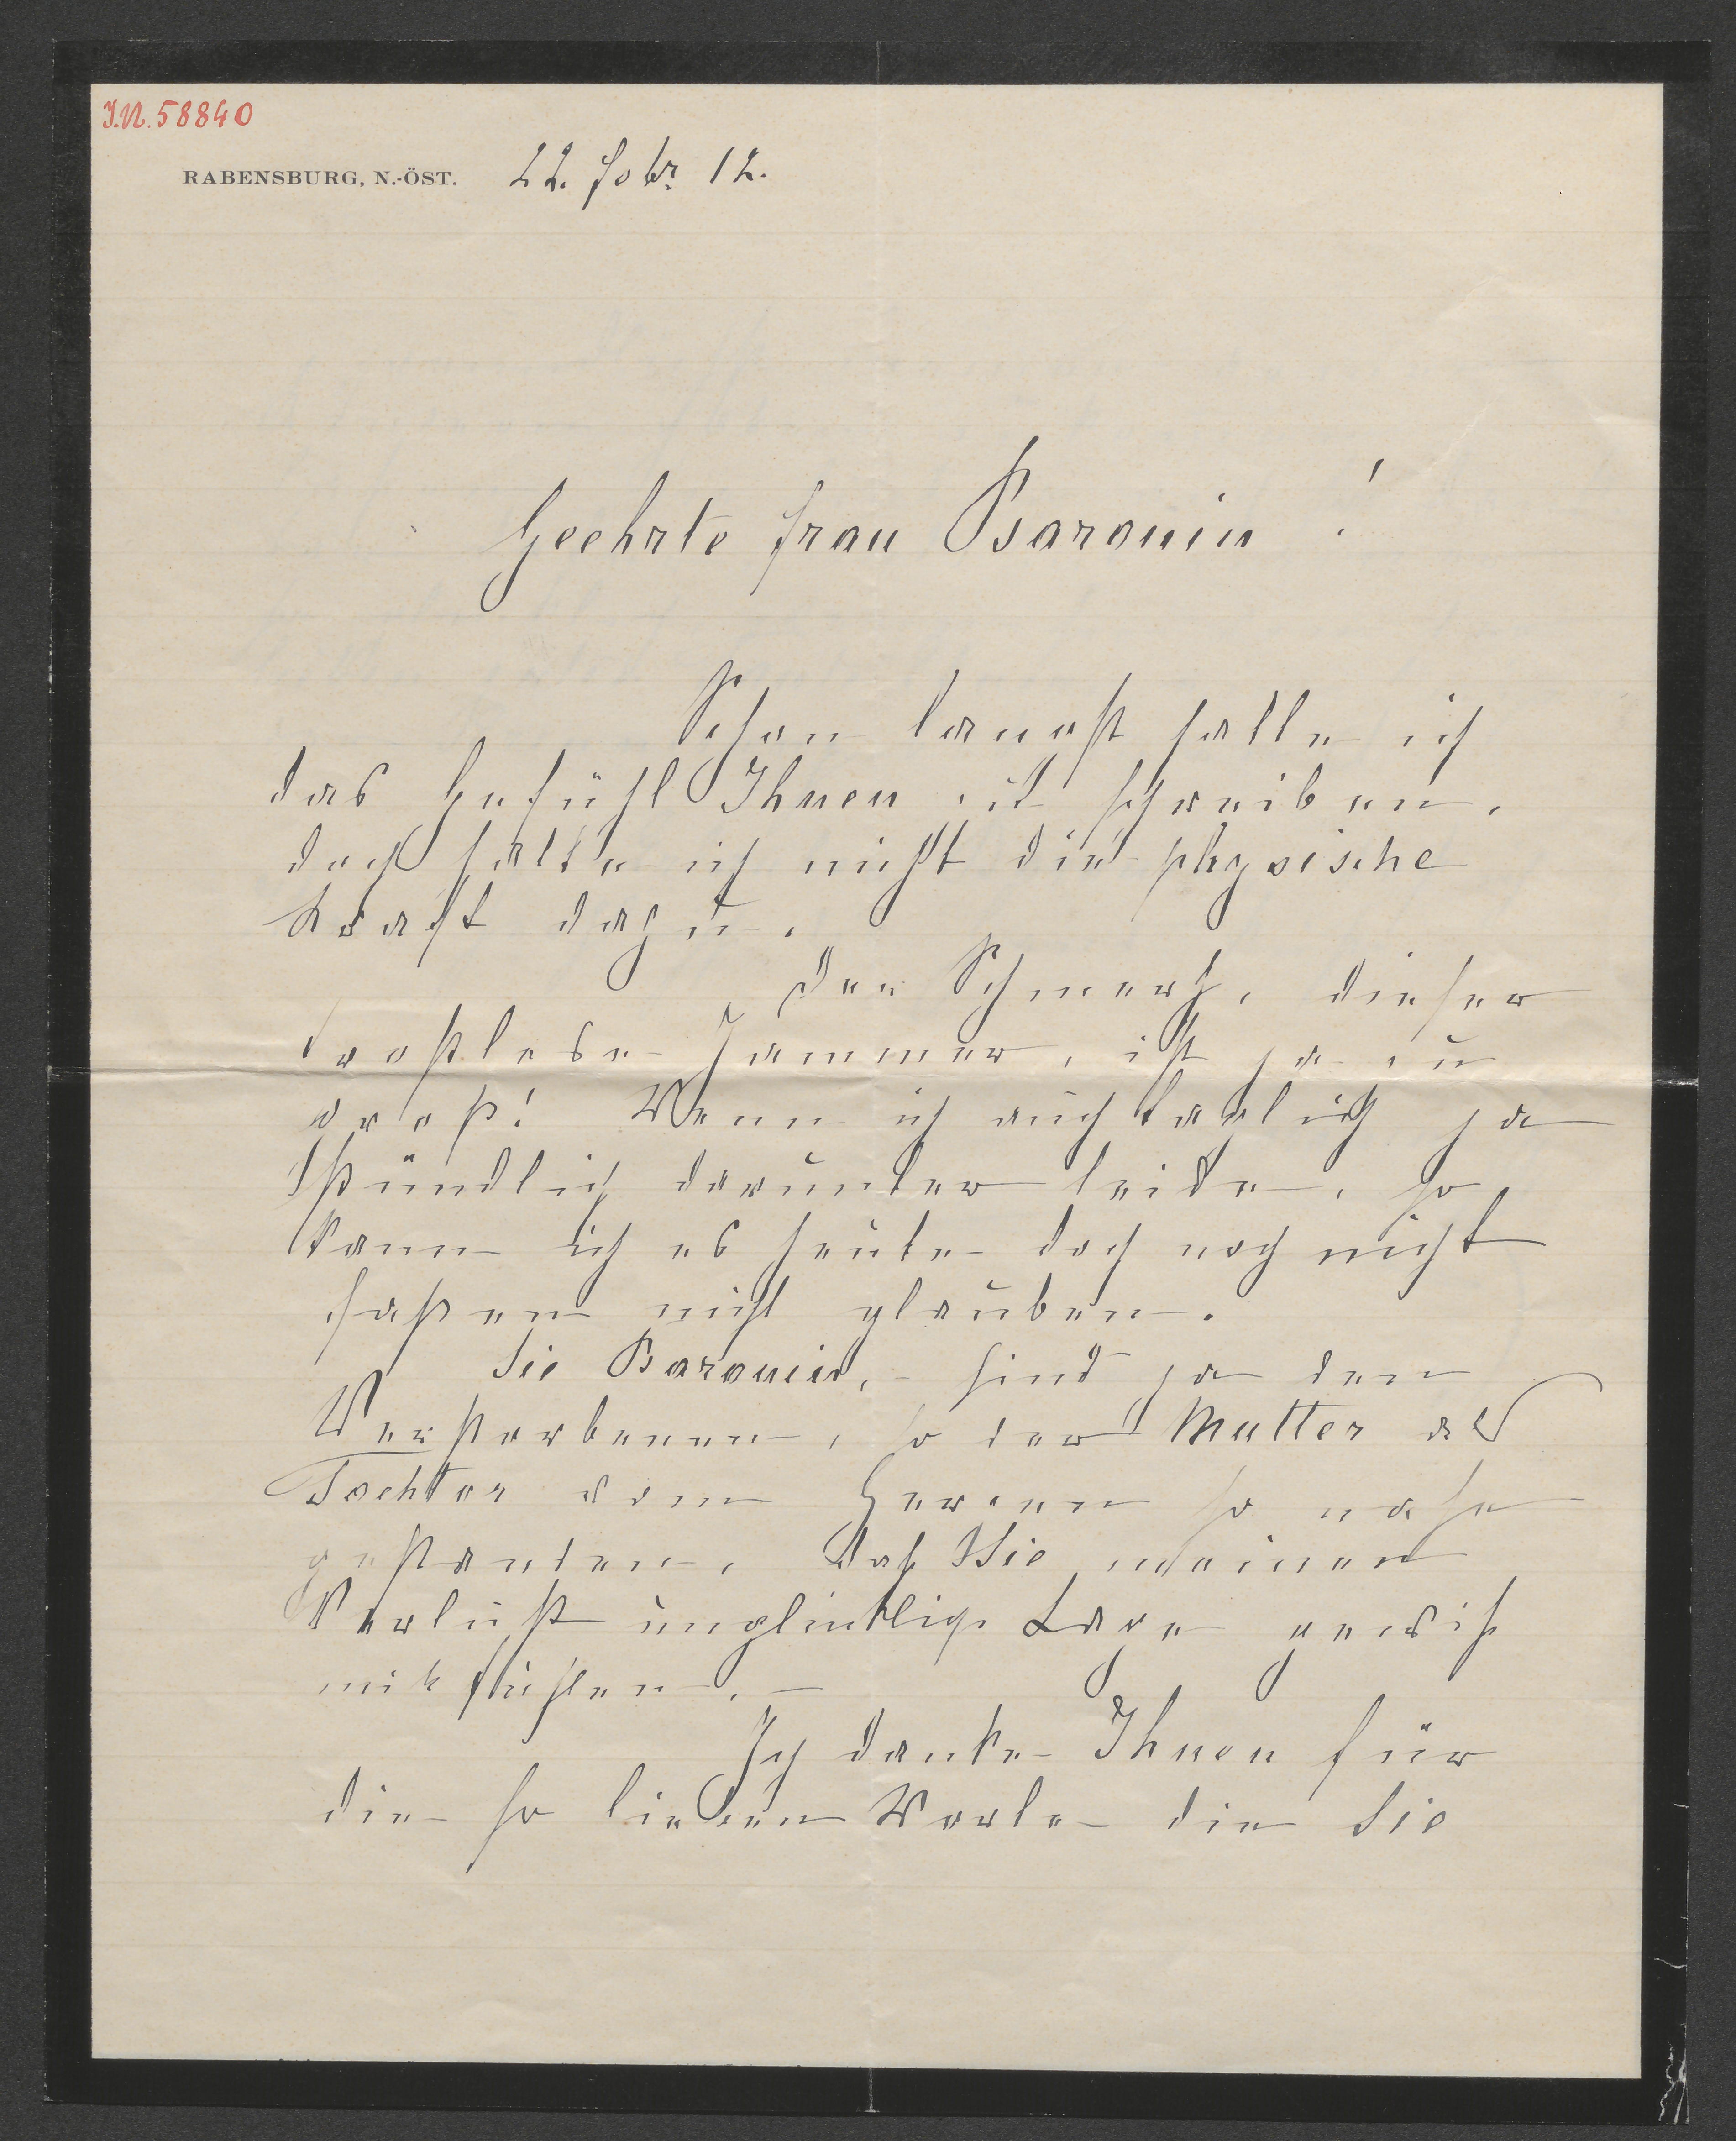 I.N. 58840
RABENSBURG, N.-ÖST. 22. Febr. 12.
Geehrte Frau Baronin!
Schon langst hatte ich
das Gefühl Ihnen zu schreiben,
doch hatte ich nicht die physische
Kraft dazu.
Der Schmerz, dieser
trostlose Jammer, ist ja zu
groß! Wenn ich auch täglich ja
stündlich darunter leide, so
kann ich es heute doch noch nicht
faßen nicht glauben.
Sie Baronin, sind ja den
Verstorbenen, so der Mutter als
Tochter vom Herzen so nahe
gestanden, daß Sie meinen
Verlust unglückliche Lage gewiß
mitfühlen. –
Ich danke Ihnen für
die so lieben Worte die Sie